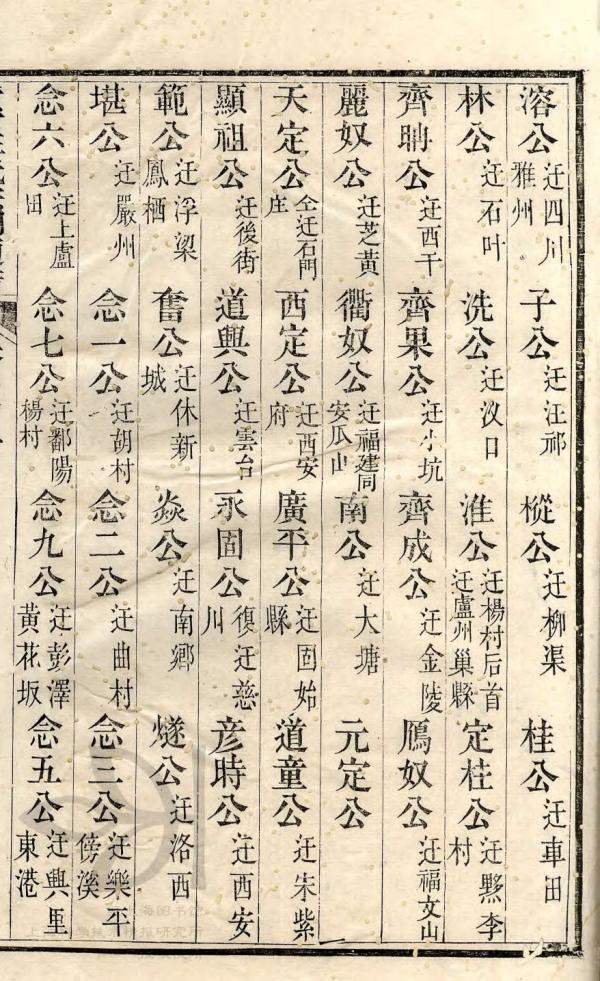 溶公迁四川雅州　子公迁汪祁　樅公迁柳渠　桂公迁車田
林公迁石叶　洗公迁汊口　淮公迁楊村后首迁廬州巢縣　定桂公迁黟李村
齊聃公迁西干　齊果公迁小坑　齊成公迁金陵　鴈奴公迁福文山
麗奴公迁芝黄　衢奴公迁福建同安瓜山　南公迁大塘　元定公
天定公仝迁石門庄　西定公迁西安府　廣平公迁固始縣　道童公迁朱紫
顯祖公迁後街　道興公迁雲台　永固公復迁慈川　彦時公迁西安
範公迁浮梁鳳栖　奮公迁休新城　焱公迁南鄉　燧公迁洛西
堪公迁嚴州　念一公迁胡村　念二公迁曲村　念三公迁樂平傍溪
念六公迁上盧田　念七公迁鄱陽楊村　念九公迁彭澤黄花坂　念五公迁興里東港